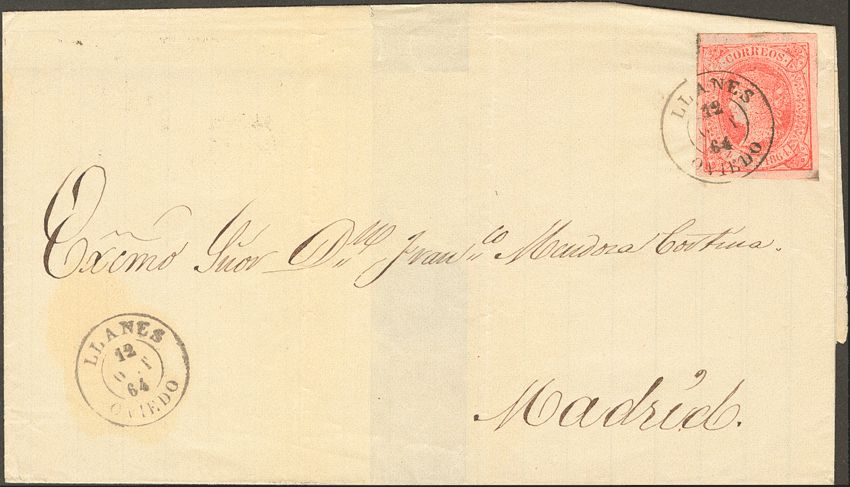 CORREOS
1864
LLANES
12
64
OVIEDO
Exc̃mo Sñor D.ⁿ Fran.co Mendoza Cortina.
LLANES
12
O T
64
OVIEDO
Madrid.